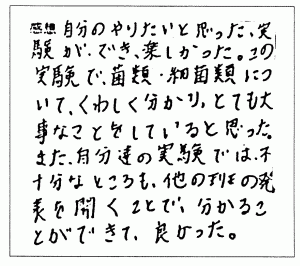 感想 自分のやりたいと思った、実
験が、でき、楽しかった。この
実験で、菌類・細菌類につ
いて、くわしく分かり、とても大
事なことをしていると思った。
また、自分達の実験では、不
十分なところも、他の班の発
表を聞くことで、分かるこ
とができて、良かった。